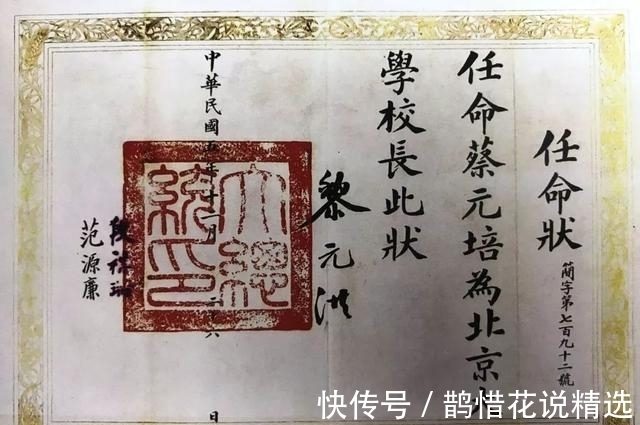 任命狀
簡字第七百九十二號
任命蔡元培為北京大
學校長此狀
黎元洪
大總統印
中華民國五年十二月二十六日
段祺瑞
范源廉
快传号/鹊惜花说精选